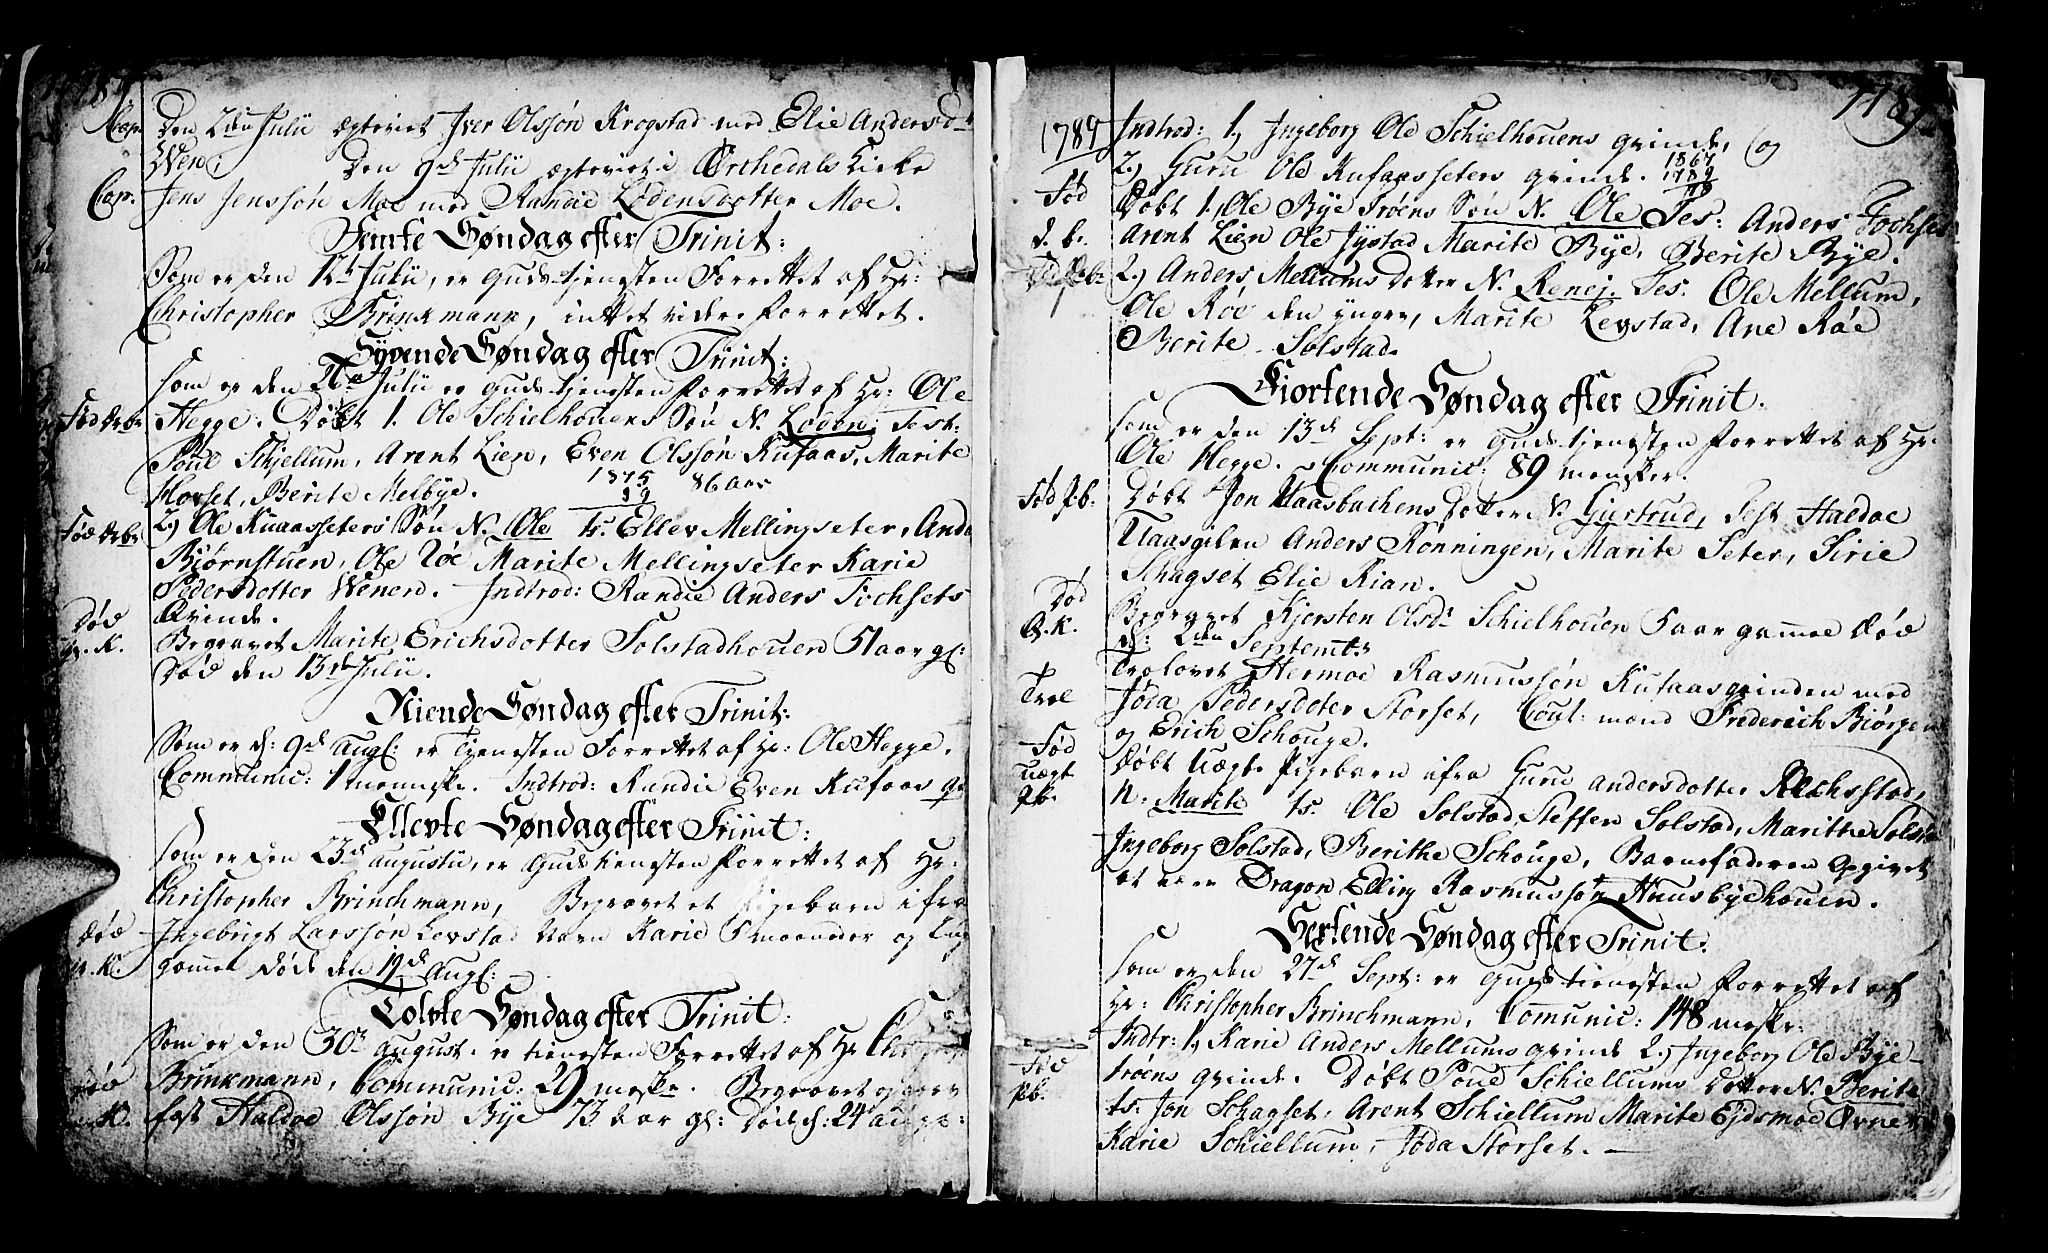 1789
Cop. Den 2den Julii ægteviet Iver Olssøn Krogstad med Elie Andersd:
Wen; Den 9de Julii ægteviet i Ørchedals Kirke
Cop. Jens Jenssøn Moe med Randie Lødensdotter Moe.
Femte Søndag efter Trinit:
Som er den 12te Julii, er Guds tjenesten Forrettet af Hr:
Christopher Brinkmann, intet videre forrettet.
Syvende Søndag efter Trinit:
som er den 26de Julii er Guds tjenesten Forrettet af Hr: Ole
Fød Hegge. Døbt 1. Ole Schielhouens Søn N. Løden; Test:
Poul Schjellum, Arent Lien, Even Olssøn Kufaas, Marite
Horset, Berite Melbye. 1875 86 aar
2) Ole Kuaassæters Søn N. Ole Ts. Ellev Mellingseter, Ande
Bjørnstuen, Ole Røe Marite Mellingseter Karie
Pedersdotter Wenen. Indtrod: Randie Anders Fochsets
Død Qvinde.
G. K. Begravet Marite Erichsdotter Solstadhouen 51 aar gl:
Død den 13de Julii.
Niende Søndag efter Trinit:
Som er d: 9de Augs: er Tjenesten Forrettet af Hr: Ole Hegge.
Communic: 1 menneske. Indtrod: Randie Even Kufaas q
Ellevte Søndag efter Trinit:
som er den 23de augustii, er Guds tienesten Forrettet af Hr:
Christopher Brinchmann, Begravet et Pigebarn ifra
død Ingebrigt Larssøn Levstad Navn Karie 5 maaneder og
G. K. gammel døde den 19de Augs:
Tolvte Søndag efter Trinit:
Som er den 30te august: er tienesten Forrettet af Hr
Brinkmann, Communic: 29 mesker. Begravet
fast Haldoe Olssøn Bye 73 aar gl: Døde d: 24 augs:
1789
1789 Indtrod: 1) Ingeborg Ole Schielhouens qvinde, og
2) Guru Ole Kufaassæters qvinde. 1867
1789
78
Fød Døbt 1. Ole Bye Trøens Søn N. Ole Tes: Anders Fochset
d. b. Arent Lien Ole Jystad Marite Bye, Berite Bye.
2) Anders Mellums Dotter N. Renej. Tes: Ole Mellum,
Ole Røe den yngre, Marite Levstad, Ane Røe
Berite Solstad.
Fiortende Søndag efter Trinit.
som er den 13de Sept: er Guds tjenesten Forrettet af Hr.
Ole Hegge. Communic: 89 mensker.
Fød P.b. Døbt Jon Uaasbachens Dotter N. Giertrud, Test Haldoe
Uaasgilen Anders Rønningen, Marite Seter, Sirie
Schagset Elie Rian.
Død Begravet Kjersten Olsd: Schielhouen 5 aar gammel død
G. K. d: 2den Septemb:
Trol Trolovet Hermoe Rasmussøn Kufaasgrinden med
Jøda Pedersdoter Storset, Cout: mend Frederich Biørgen
og Erich Schouge.
Fød Døbt Uægte Pigebarn ifra Guru Andersdotter Rechsstad,
uægt
P.b. N. Marite ts. Ole Solstad, Steffen Solstad, Marithe Solst
Ingeborg Solstad, Berithe Schouge, Barnefaderen Opgivet
at være Dragon Elling Rasmussøn Huusbyehouen.
Sextende Søndag efter Trinit:
som er den 27de Sept: er Guds tienesten Forrettet af
Hr: Christopher Brinchmann, Comunic: 148 meske:
Indtr: 1) Karie Anders Mellums qvinde 2) Ingeborg Ole Bye-
Fød trøens qvinde. Døbt Poul Schiellums Dotter N. Berite
P.b. ts: Jon Schagset, Arent Schiellum Marite Ejdsmoe Ørne
Karie Schiellum, Jøda Storset. —